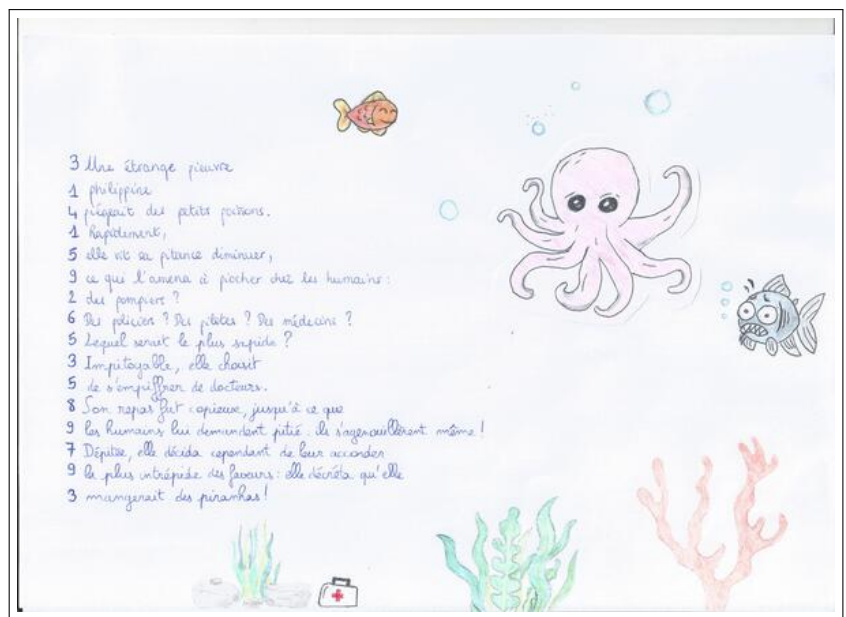 3 Une étrange pieuvre
1 philippine
4 piégeait des petits poissons.
1 Rapidement,
5 elle vit sa pitance diminuer,
9 ce qui l'amena à piocher chez les humains :
2 des pompiers ?
6 Des policiers ? Des pilotes ? Des médecins ?
5 Lequel serait le plus sapide ?
3 Impitoyable, elle choisit
5 de s'empiffrer de docteurs.
8 Son repas fut copieux, jusqu'à ce que
9 les humains lui demandent pitié : ils s'agenouillèrent même !
7 Dépitée, elle décida cependant de leur accorder
9 la plus intrépide des faveurs : elle décréta qu'elle
3 mangerait des piranhas !